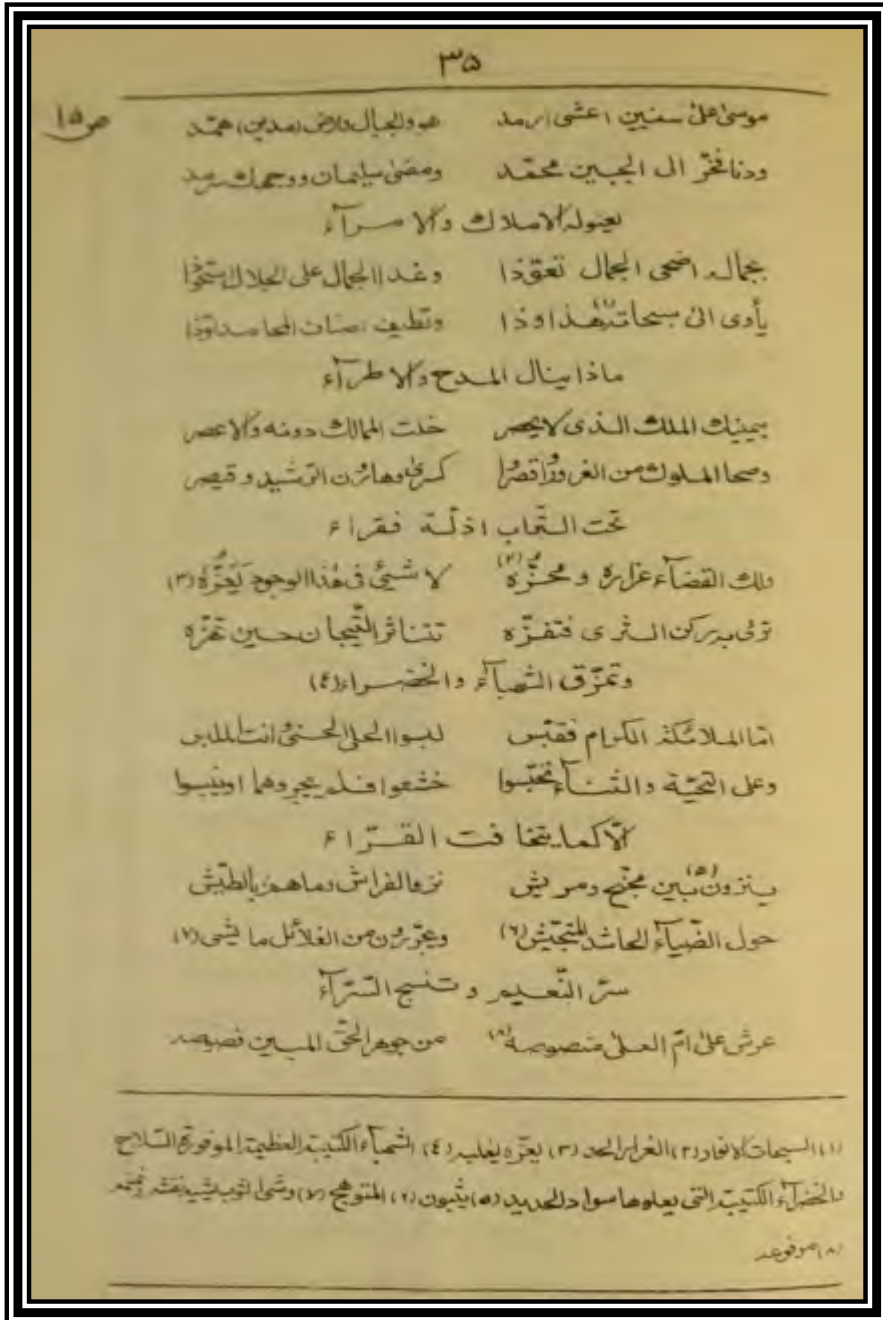 ٣٥
ص ١٥
موسى على سينين اعشى ارمد هو والجبال وارض مدين همّد
ودنا فخرّ الى الجبين محمّد ومضى سليمان ووجهك سرمد
يعنو له الاملاك والامرآء
بجماله اضحى الجمال تعوّذا وغدا الجمال على الجلال
يأوى الى سبحاته(١) هذا وذا وتطيف
ماذا ينال المدح والاطرآء
بيمينك الملك الذى لا يحصر خلت الممالك دونه والاعصر
وصحا الملوك من الغرور واقصروا كسرىٰ وهارُن الرّشيد وقيصر
تحت التّراب اذلّة فقراء
ولك القضآء غراره ومحزُّه(٢) لا شىءَ فى هٰذا الوجود يَعُزُّهُ(٣)
ترمى به ركن الثرى فتفزّه تتناثر التّيجان حين تهزّه
وتمزّق الشهبآء والخضراء(٤)
امّا الملائكة الكرام فقبّس لبسوا الحلى الحسنىٰ انت الملبس
وعلى التحيّة والثنآء تحبّسوا خشعوا فلم يجروهما او ينبسوا
الّا كما يتخافت القرّاء
ينزون(٥) بين مجنّح ومريّش نزو الفراش وما هم بالطّيّش
حول الضّيآء الحاشد المتجيّش(٦) ويجرّرون من الغلائل ما يشى(٧)
سرّ النّعيم وتنسج السّرّآء
عرش علىٰ امّ العلىٰ منصوصة(٨) من جوهر الحقّ المبين فصوصه
(١) السبحات الانوار (٢) الغرار الحد (٣) يعزّه يغلبه (٤) الشهبآء الكتيبة العظيمة الموفورة السّلاح
والخضرآء الكتيبة التى يعلوها سواد الحديد (٥) يثبون (٦) المتوهج (٧) وشى الثوب يشيه نقشه
(٨) مرفوعة